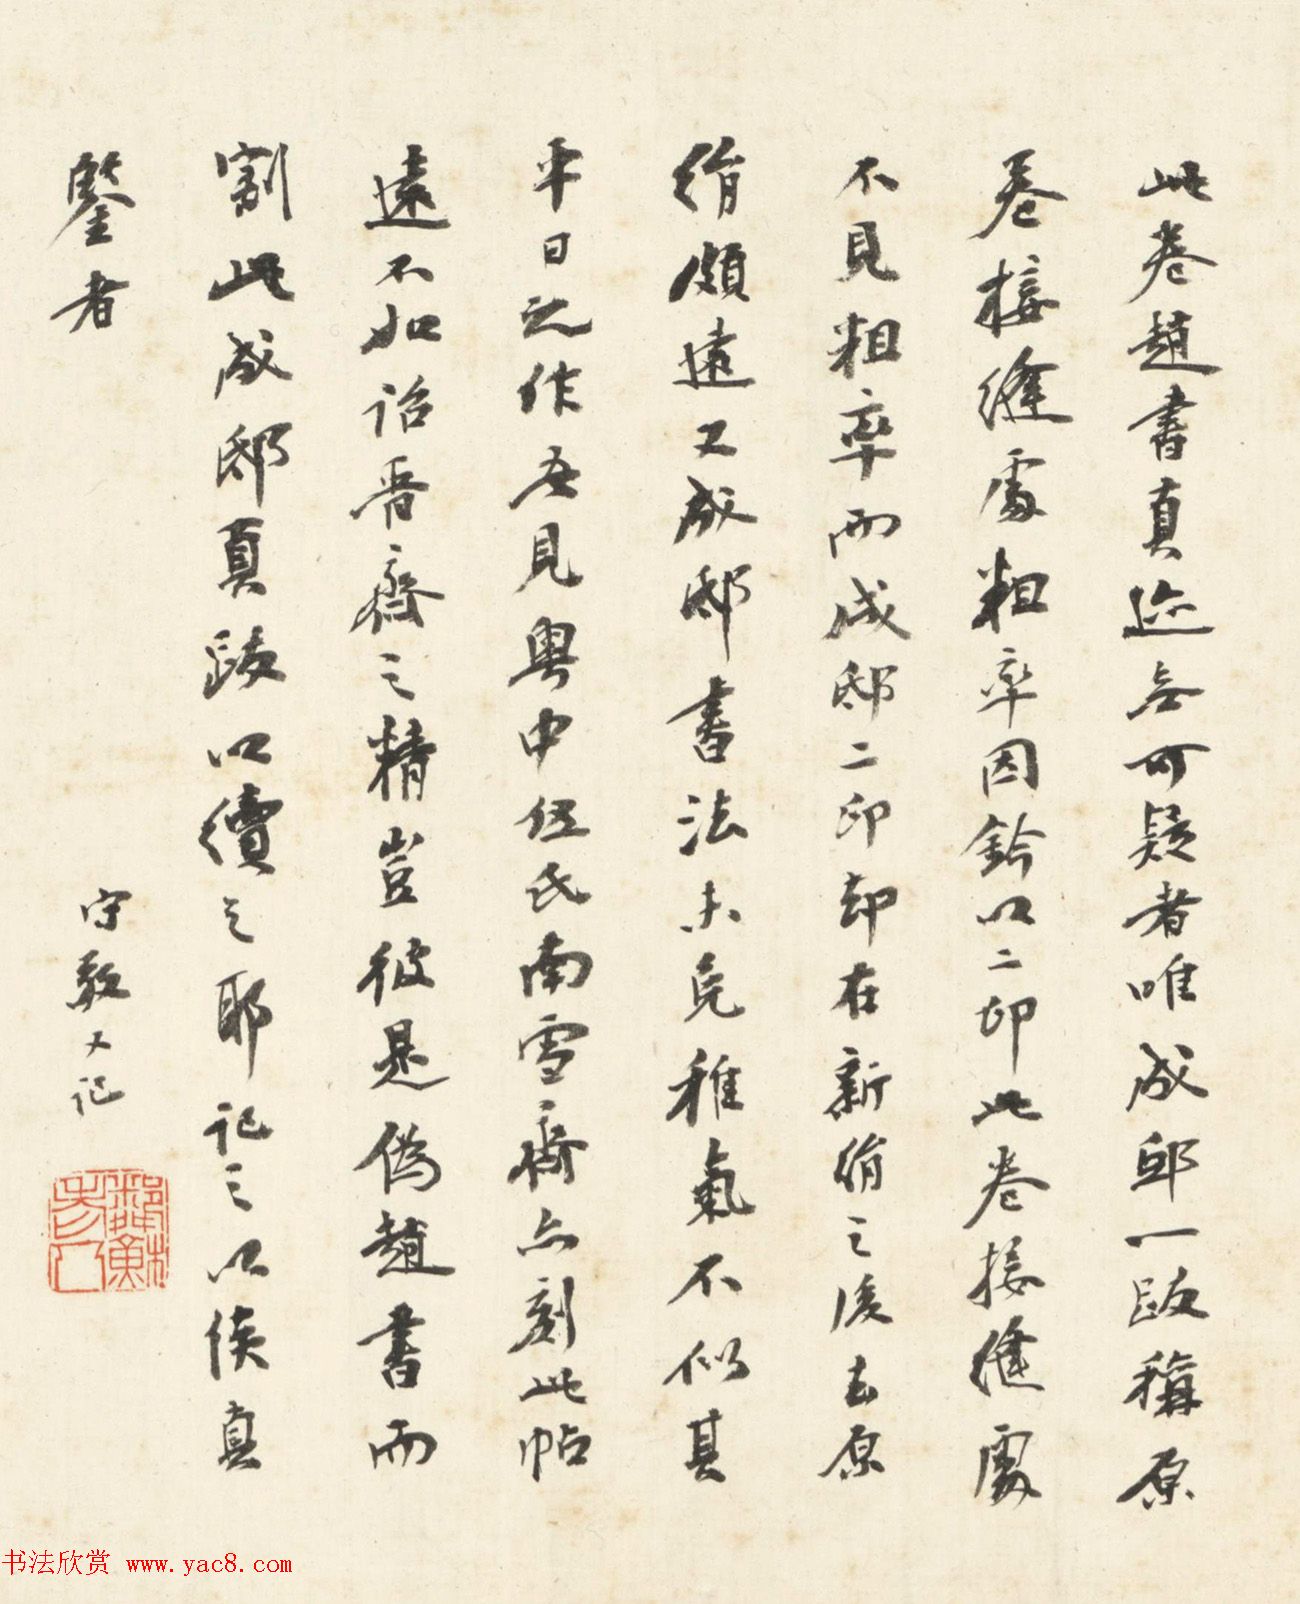 此卷趙書真迹無可疑者唯成邸一跋稱原
卷接縫處粗率因鈐以二印此卷接縫處
不見粗率而成邸二印却在新絹之後去原
絹頗遠又成邸書法未免稚氣不似其
平日之作吾見粵中伍氏南雪齋亦刻此帖
遠不如詒晉齋之精豈彼是僞趙書而
割此成邸真跋以續之耶記之以俟真
鑒者
守敬又記
書法欣賞 www.yac8.com